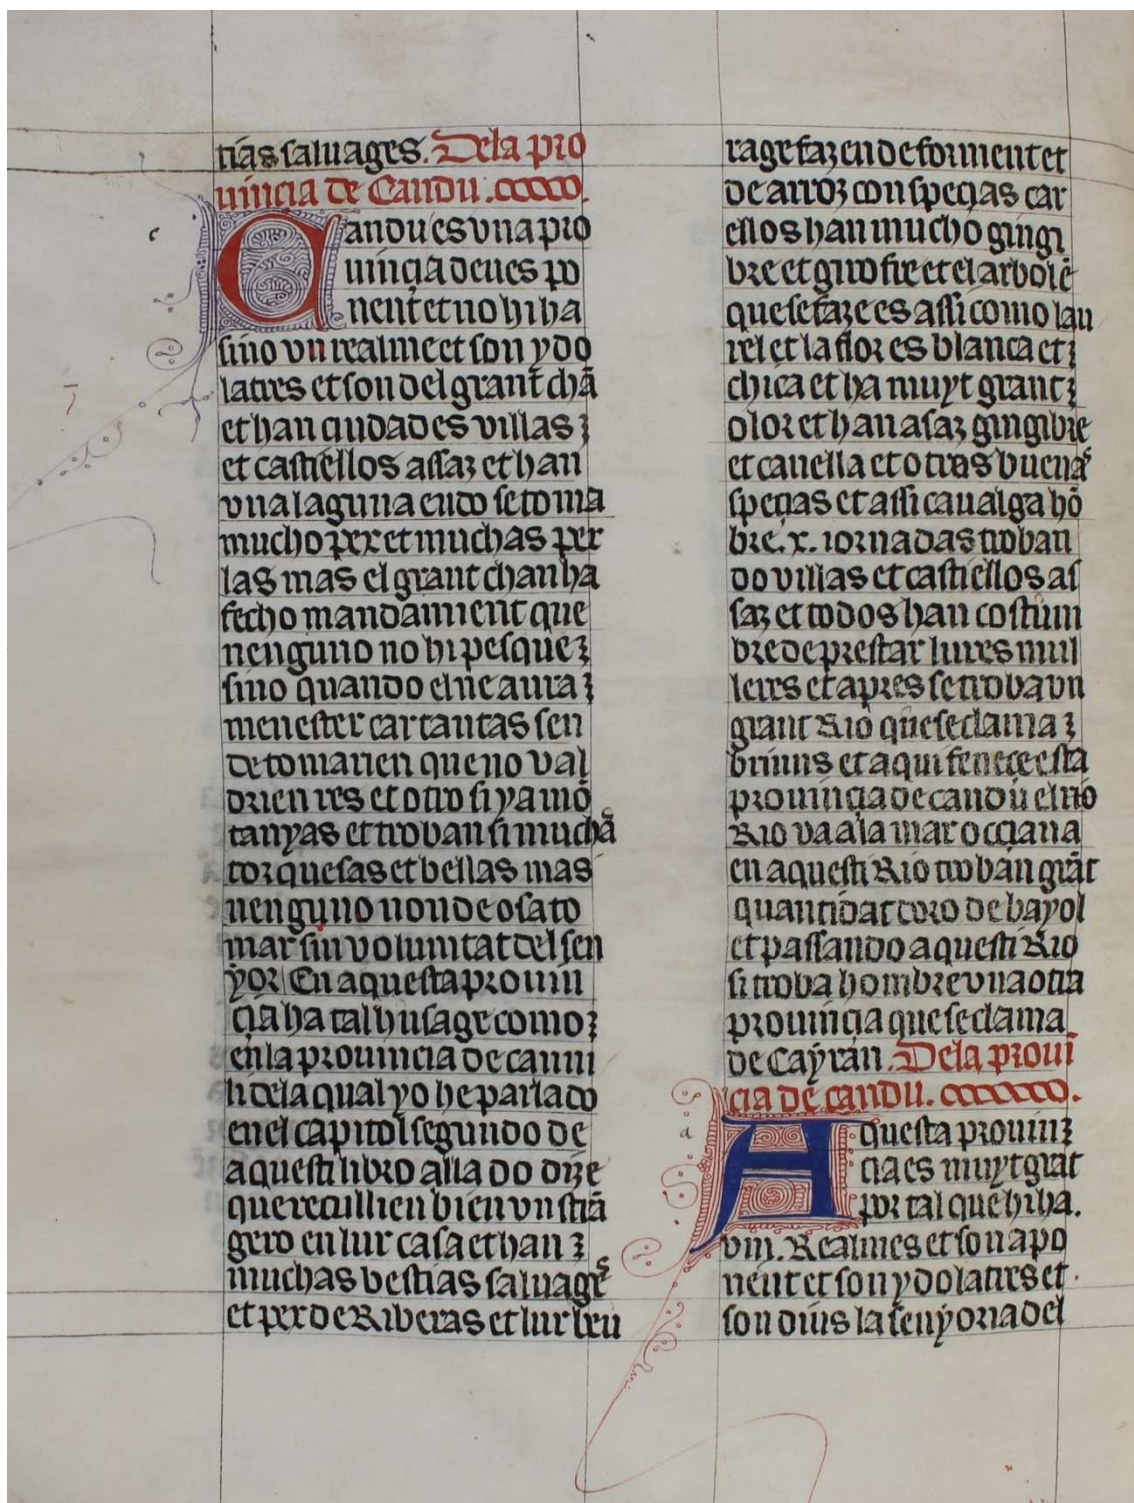 tias saluages. Dela pro
uinçia de Candu .ccccc.
Candu es vna pro
uinçia deues po
nent et no hi ha
sino vn realme et son ydo
latres et son del grant chã
et han çiudades villas ꝫ
et castiellos assaz et han
vna laguna en do se toma
mucho pex et muchas per
las mas el grant chan ha
fecho mandamient que
nenguno no hi pesque ꝫ
sino quando el ne aura ꝫ
menester car tantas sen
de tomarien que no val
drien res et otro si ya mõ
tanyas et troban si muchã
torquesas et bellas mas
nenguno non de osa to
mar sin voluntat del sen
yor En aquesta prouin
çia ha tal husage como ꝫ
en la prouincia de camu
li dela qual yo he parlado
en el capitol segundo de
aquesti libro alla do dize
que recullien bien vn strã
gero en lur casa et han ꝫ
muchas bestias saluages
et pex de Riberas et lur beu
rage fazen de forment et
de arroz con speçias car
ellos han mucho gingi
bre et girofre et el arbol ẽ
que se faze es assi como lau
rel et la flor es blanca et ꝫ
chica et ha muyt grant ꝫ
olor et han asaz gingibre
et canella et otras buenas
speçias et assi caualga hõ
bre .x. iornadas troban
do villas et castiellos as
saz et todos han costum
bre de prestar lures mul
leres et apres se troba vn
grant Rio que se clama ꝫ
brinis et aqui feneçe esta
prouinçia de candu el río
Rio va ala mar occiana
en aquesti Rio troban grãt
quantidat doro de bayol
et passando aquesti Rio
si troba hombre vna otra
prouinçia que se clama
de Cayran. Dela prouĩ
çia de candu. ccccccc.
Aquesta prouin ꝫ
çia es muyt grãt
por tal que hi ha.
viii. Realmes et son a po
nent et son ydolatres et
son diüs la senyoria del